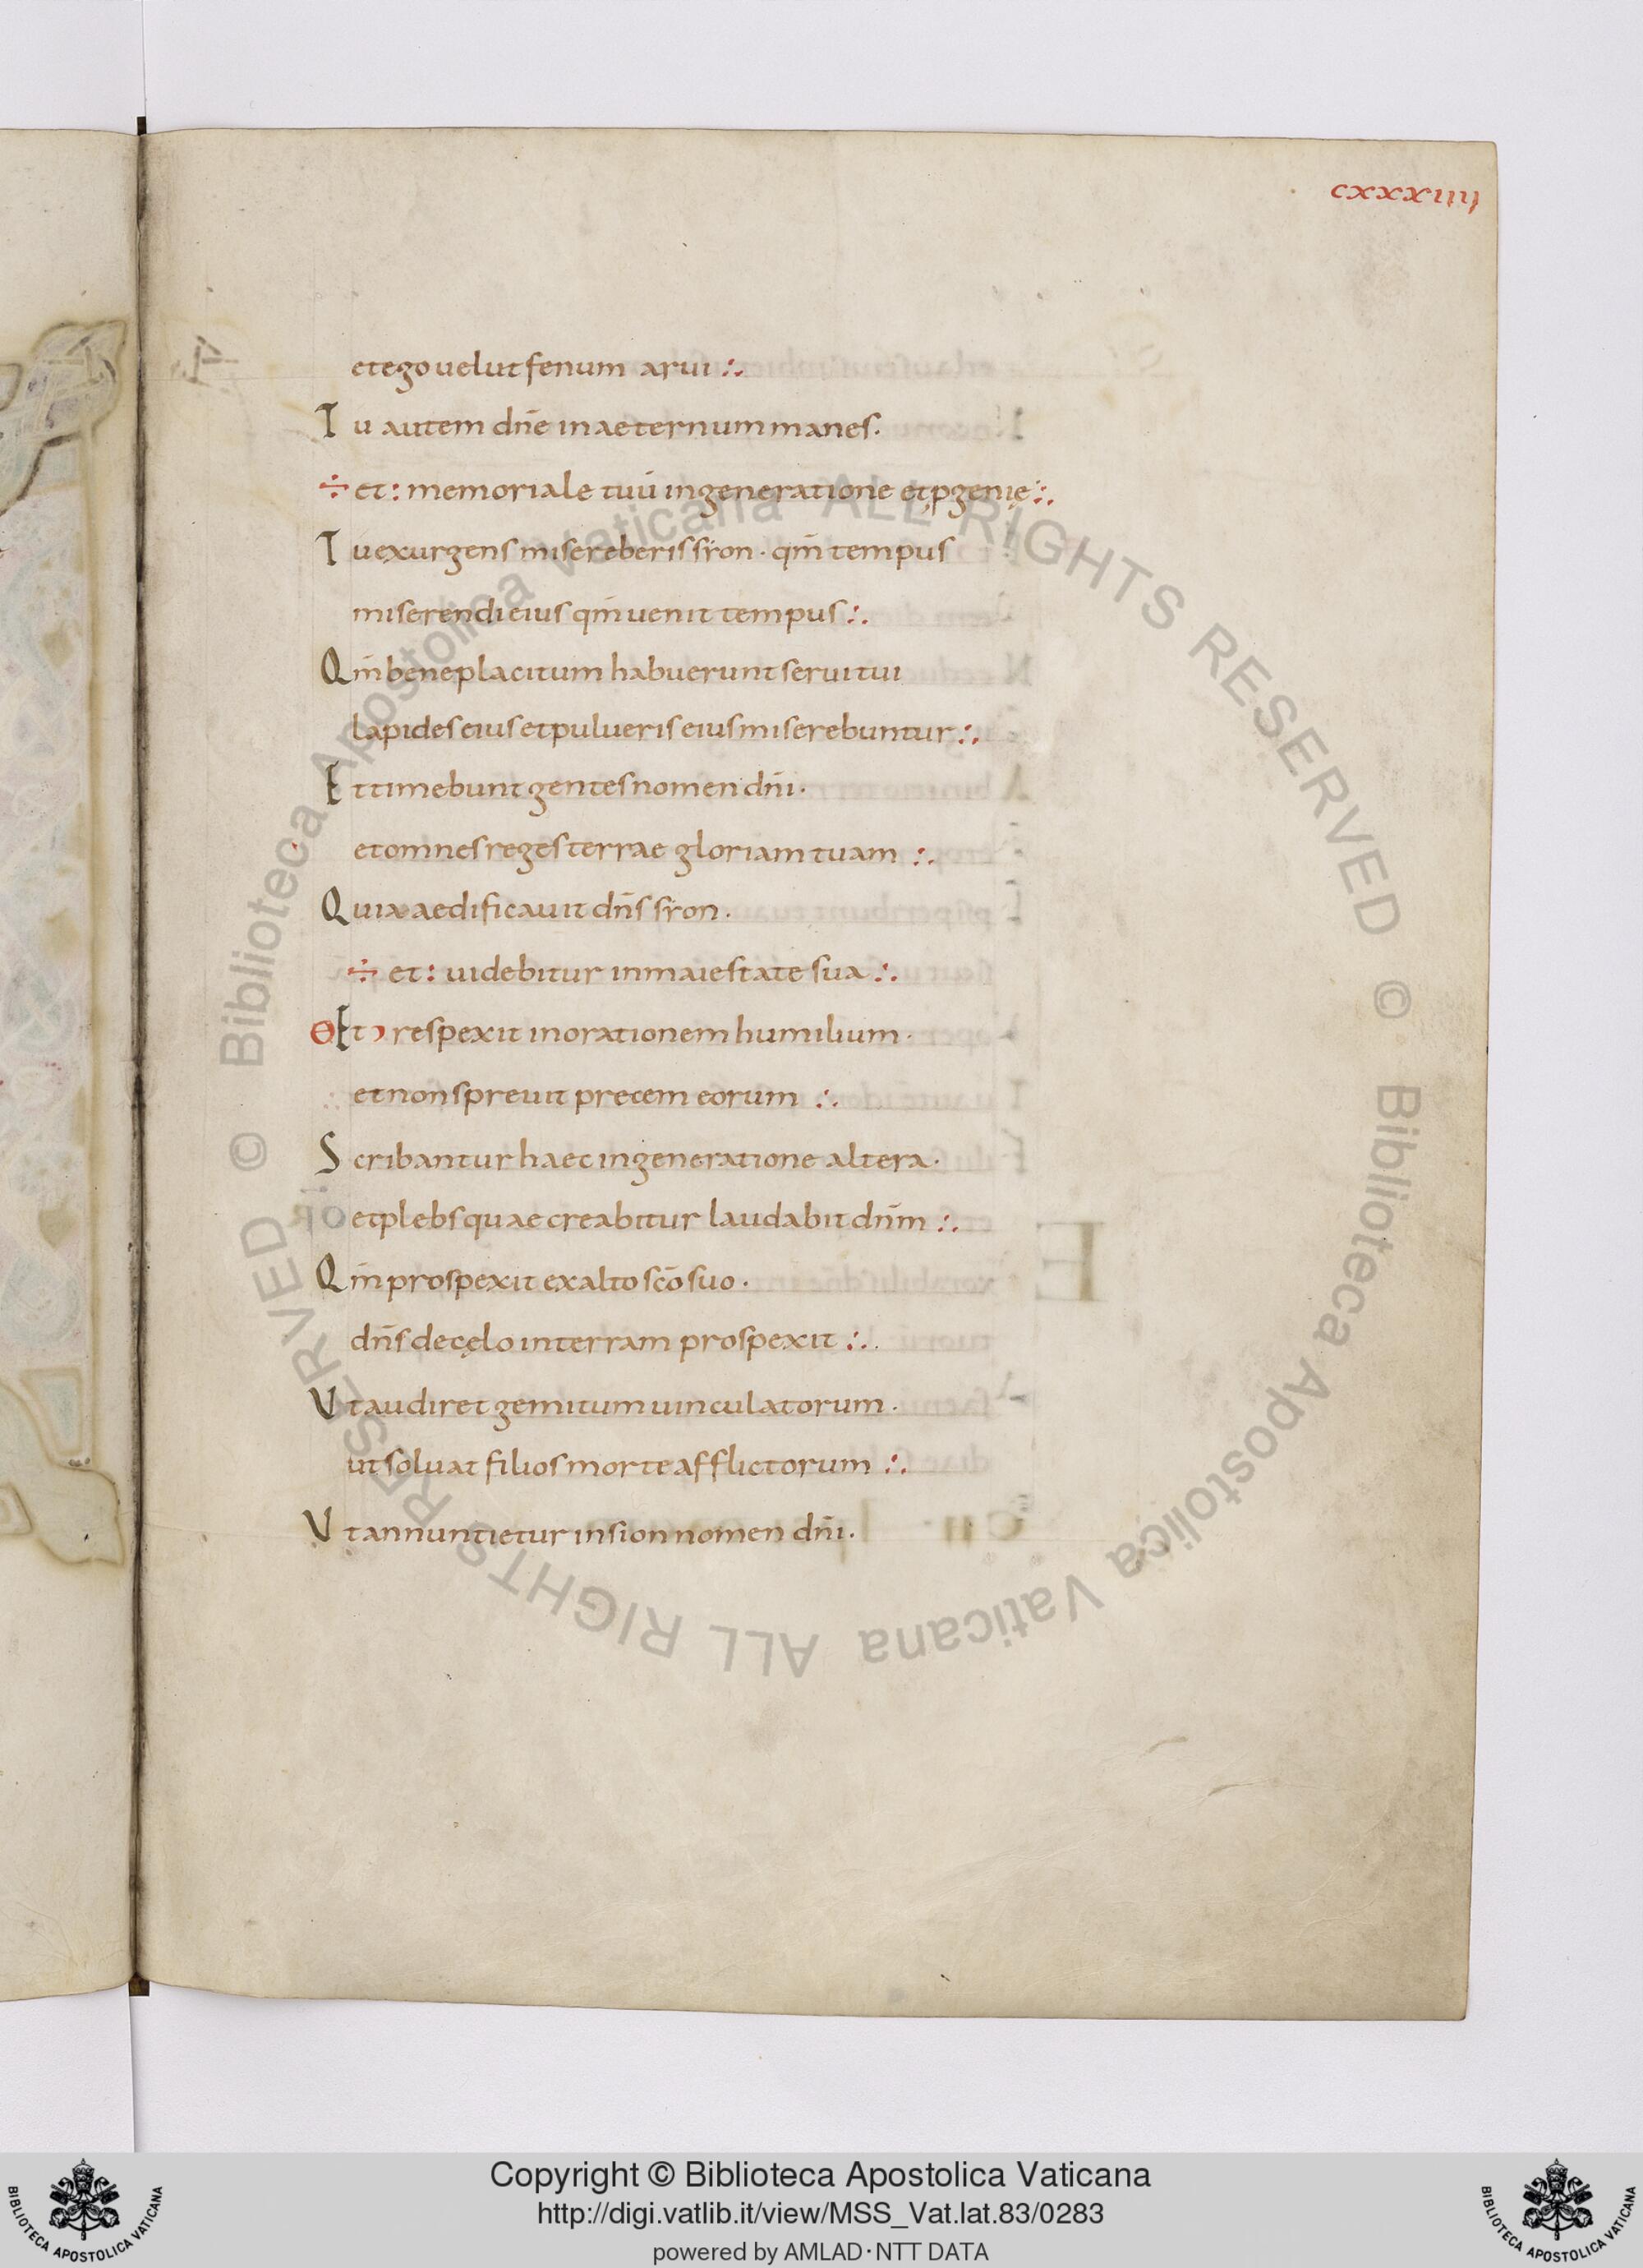 cxxxiiij
et ego uelut fenum arui :.
Tu autem dñe in aeternum manes.
÷ et : memoriale tuū in generatione et ꝓgenię :.
Tu exurgens misereberis sÿon · qm̄ tempus
miserendi eius qm̄ uenit tempus :.
Qm̄ beneplacitum habuerunt serui tui
lapides eius et pulueris eius miserebuntur :.
Et timebunt gentes nomen dñi ·
et omnes reges terrae gloriam tuam :.
Quia aedificauit dñs sÿon ·
÷ et : uidebitur in maiestate sua :.
Θ Et ꝰ respexit in orationem humilium ·
et non spreuit precem eorum :.
Scribantur haec in generatione altera ·
et plebs quae creabitur laudabit dñm :.
Qm̄ prospexit ex alto sc̄o suo ·
dñs de cęlo in terram prospexit :.
Vt audiret gemitum uinculatorum ·
ut soluat filios morte afflictorum :.
Vt annuntietur in sion nomen dñi ·
© Biblioteca Apostolica Vaticana ALL RIGHTS RESERVED
© Biblioteca Apostolica Vaticana ALL RIGHTS RESERVED
Copyright © Biblioteca Apostolica Vaticana
http://digi.vatlib.it/view/MSS_Vat.lat.83/0283
powered by AMLAD·NTT DATA
BIBLIOTECA APOSTOLICA VATICANA
BIBLIOTECA APOSTOLICA VATICANA